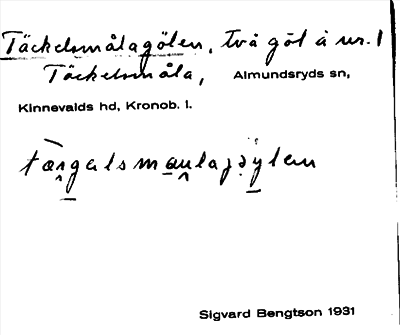 Täckelsmålagölen, två göl å nr. 1
Täckelsmåla, Almundsryds sn,
Kinnevalds hd, Kronob. l.
Sigvard Bengtson 1931